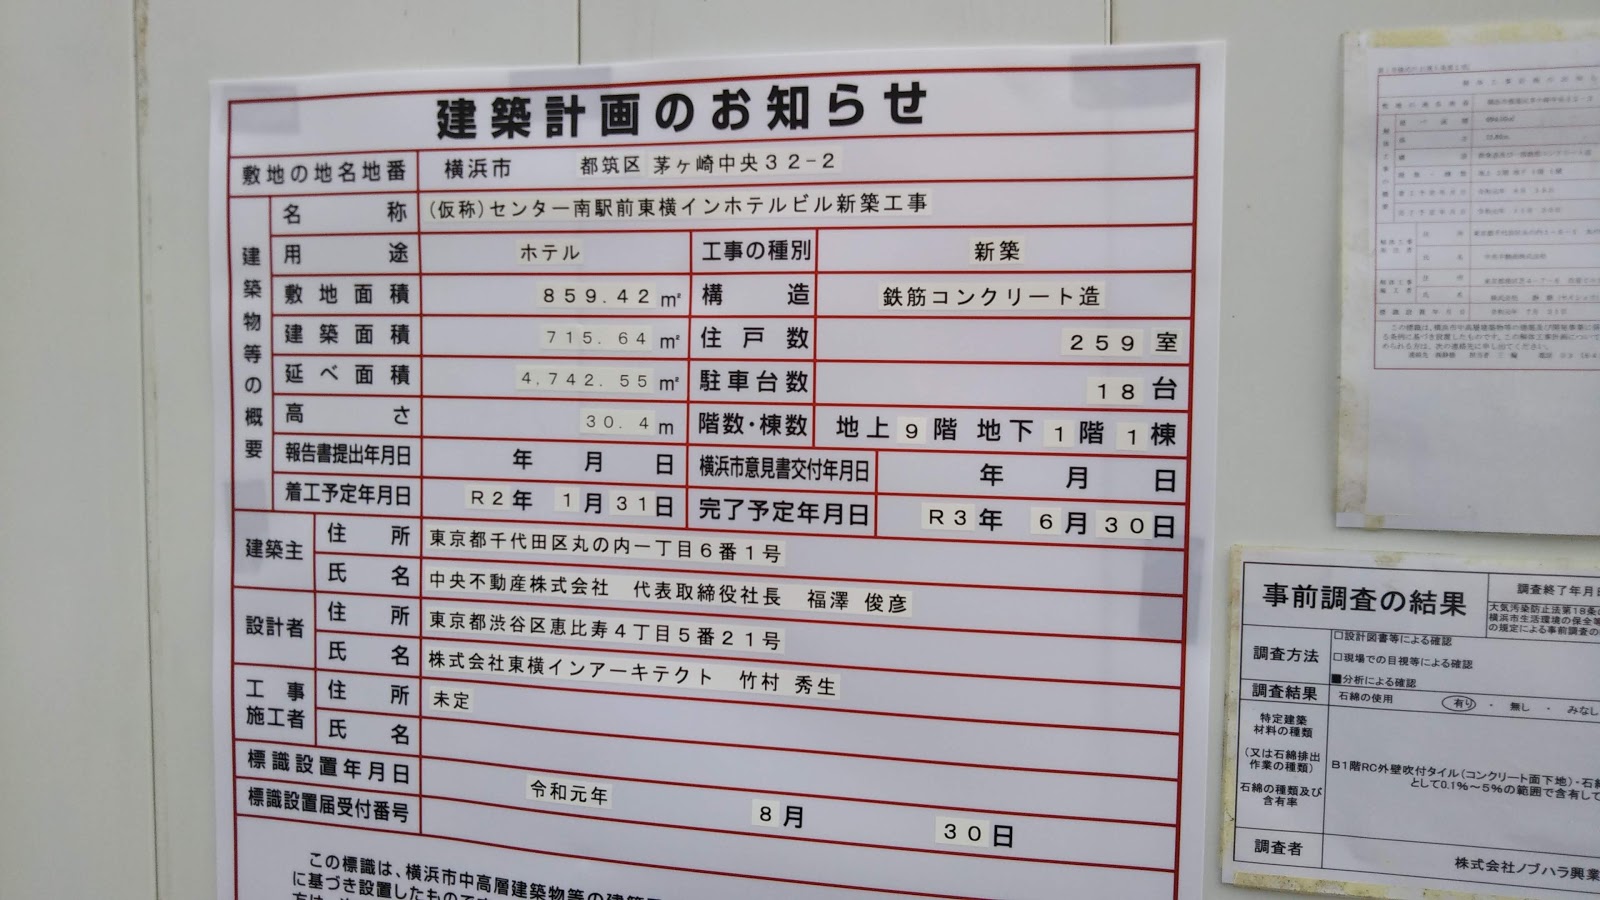 建築計画のお知らせ
敷地の地名地番 横浜市 都筑区 茅ヶ崎中央32-2
建築物等の概要
名称 (仮称)センター南駅前東横インホテルビル新築工事
用途 ホテル 工事の種別 新築
敷地面積 859.42㎡ 構造 鉄筋コンクリート造
建築面積 715.64㎡ 住戸数 259室
延べ面積 4,742.55㎡ 駐車台数 18台
高さ 30.4m 階数・棟数 地上9階 地下1階1棟
報告書提出年月日 年 月 日 横浜市意見書交付年月日 年 月 日
着工予定年月日 R2年 1月31日 完了予定年月日 R3年 6月30日
建築主 住所 東京都千代田区丸の内一丁目6番1号
氏名 中央不動産株式会社 代表取締役社長 福澤 俊彦
設計者 住所 東京都渋谷区恵比寿4丁目5番21号
氏名 株式会社東横インアーキテクト 竹村 秀生
工事施工者 住所 未定
氏名
標識設置年月日 令和元年 8月 30日
標識設置届受付番号
この標識は、横浜市中高層建築物等の建築
に基づき設置したもので
事前調査の結果 調査終了年月日
大気汚染防止法第18条
横浜市生活環境の保全等
の規定による事前調査の
調査方法 □設計図書等による確認
□現場での目視等による確認
■分析による確認
調査結果 石綿の使用 有り ・ 無し ・ みなし
特定建築
材料の種類
(又は石綿排出
作業の種類)
石綿の種類及び
含有率
B1階RC外壁吹付タイル(コンクリート面下地)・石綿
として0.1%～5%の範囲で含有して
調査者 株式会社ノブハラ興業